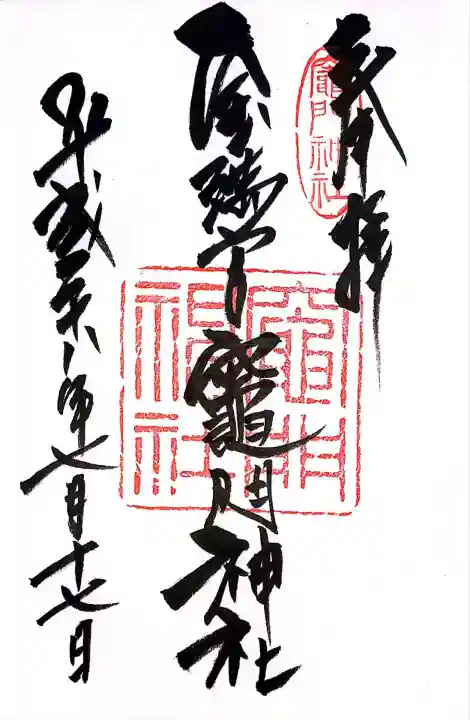 奉拝
竈門神社
鎮守竈門神社
竈門神社
平成二十八年七月十七日